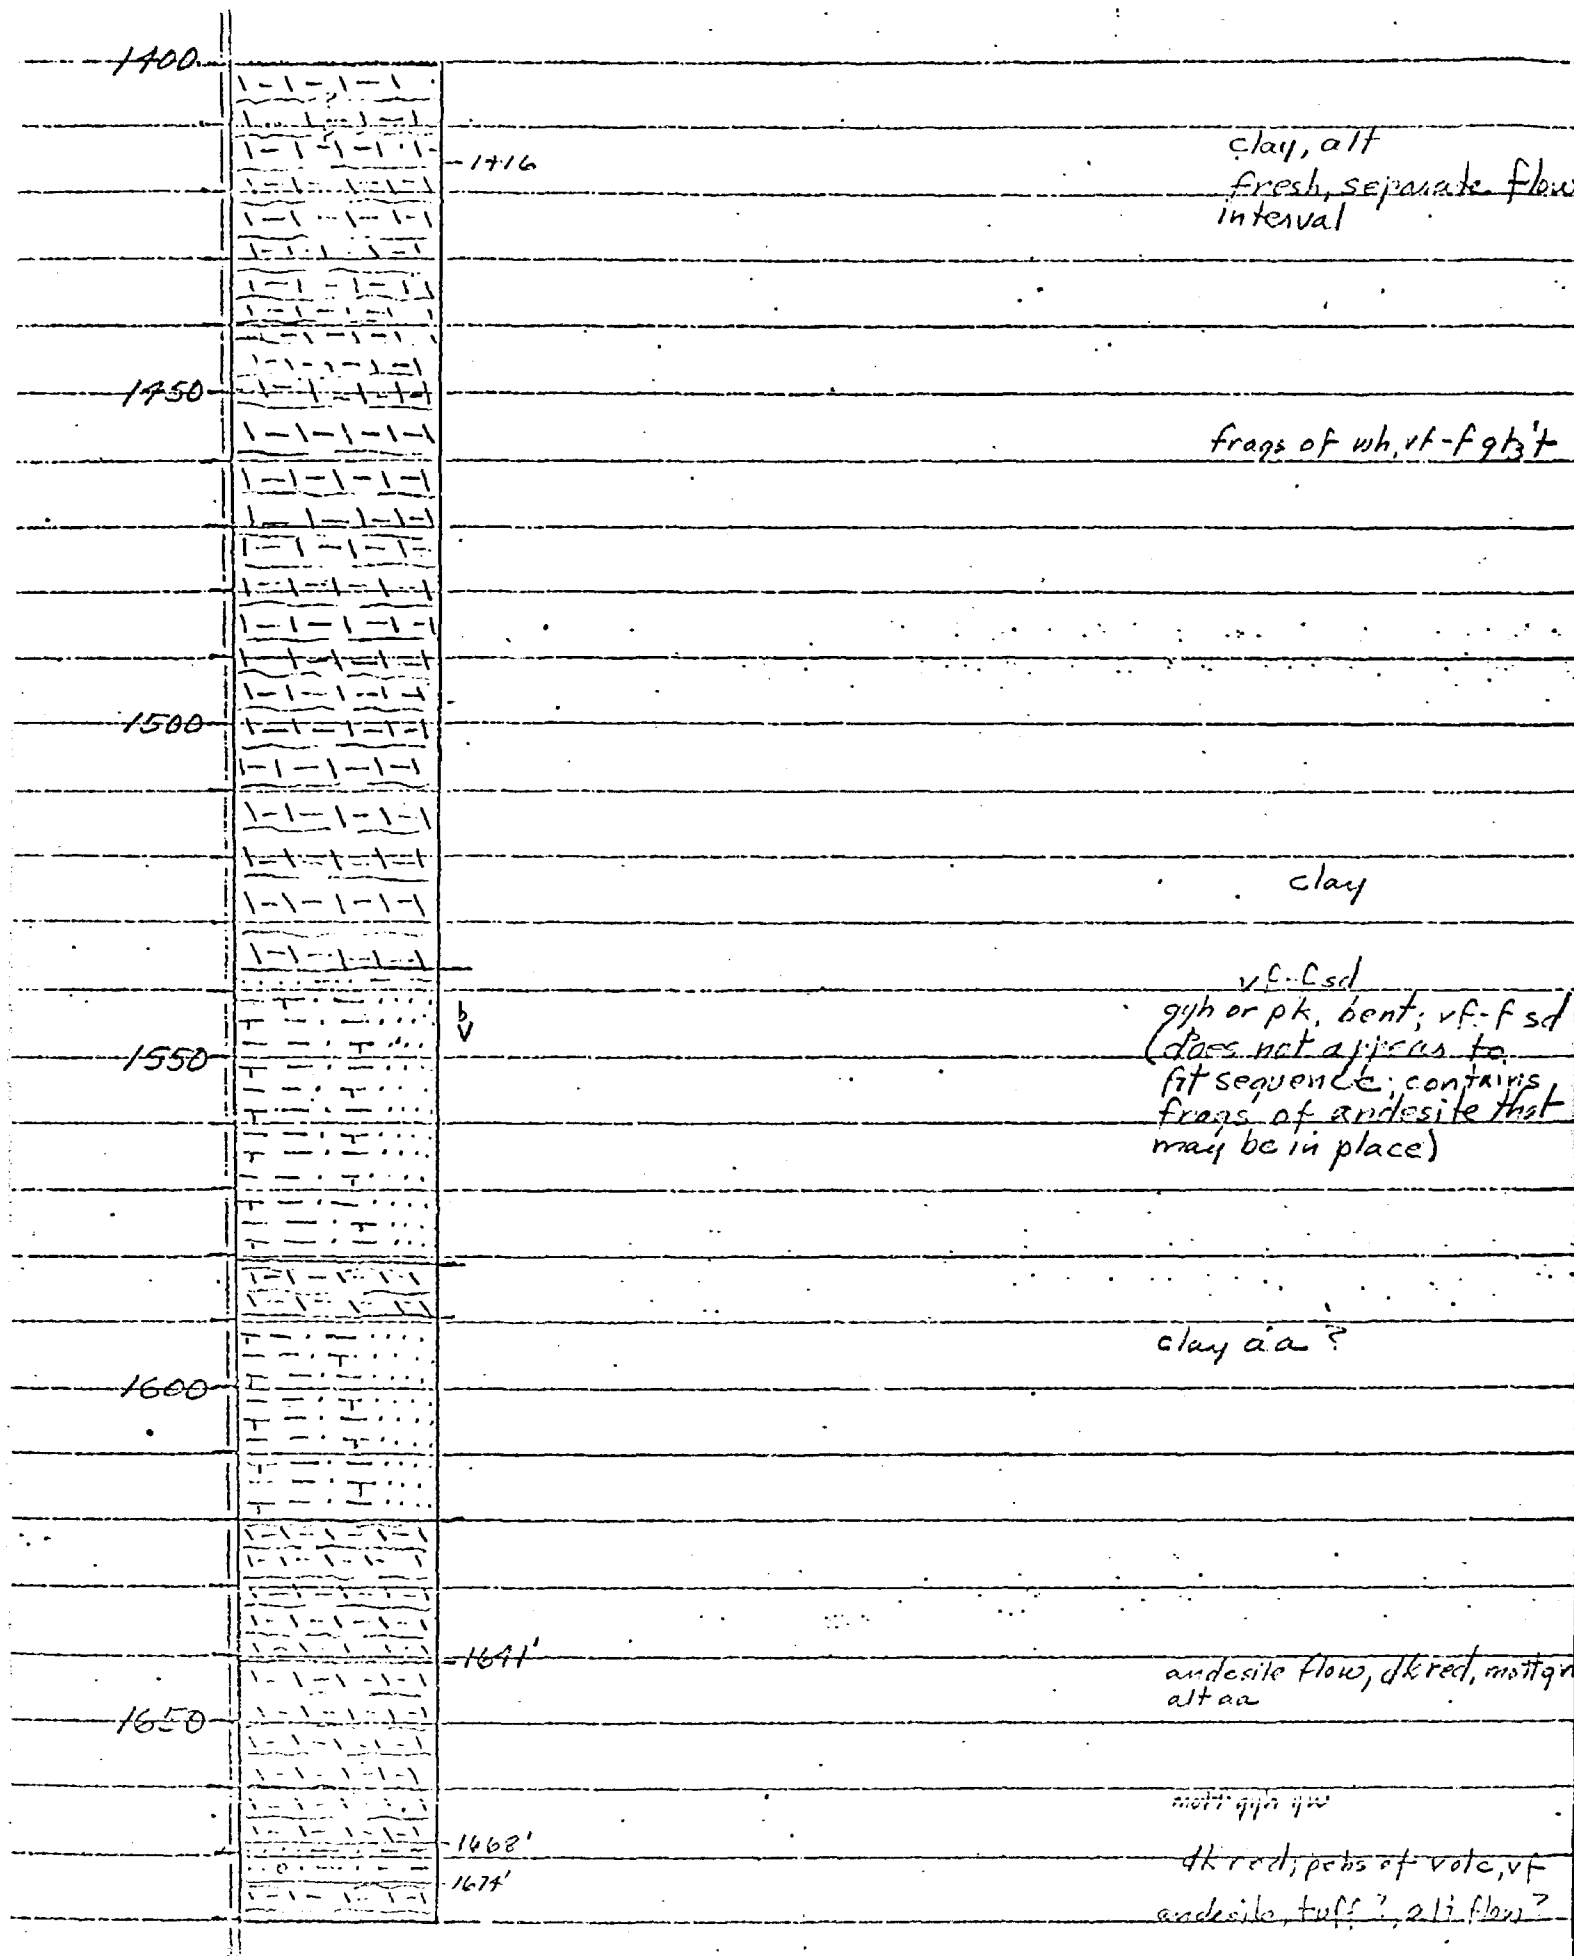 1400
1416
clay, alt
fresh, separate flow
interval
1450
frags of wh, vf-f qtz't
1500
clay
vf-f sd
b
gyh or pk, bent; vf-f sd
(does not appear to
1550
fit sequence; contains
frags of andesite that
may be in place)
clay aa ?
1600
1641'
andesite flow, dk red, mott gn
alt aa
1650
mott gyh
1668'
dk red; pebs of volc, vf
1674'
andesite, tuff?, alt flow?